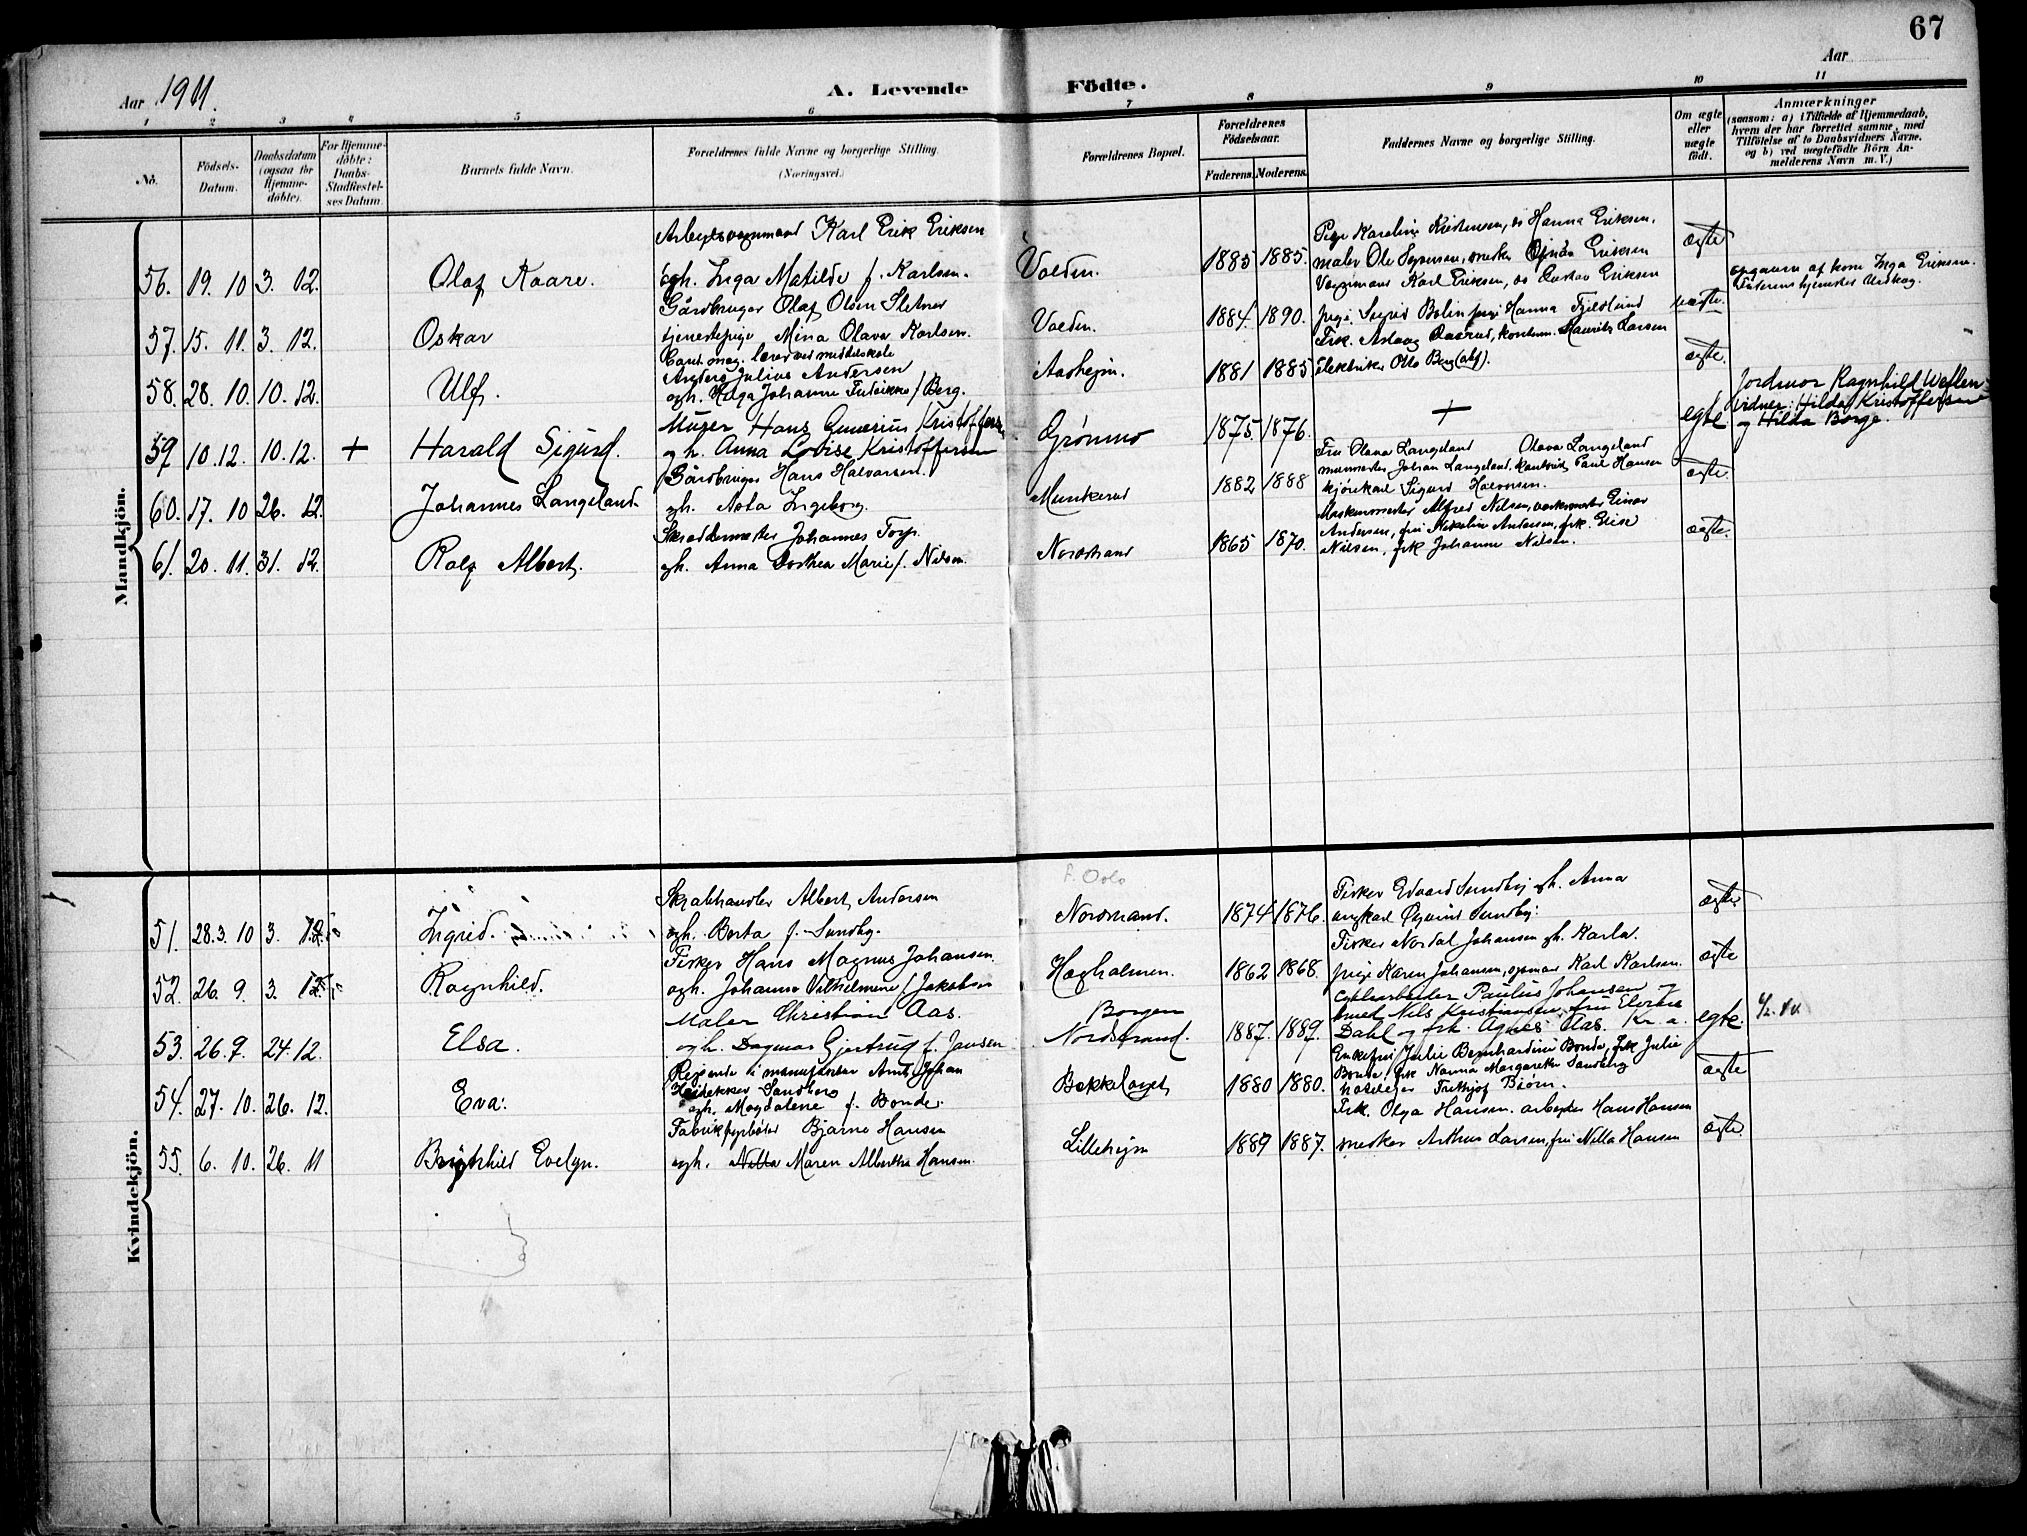 67
Aar 1911.
A. Levende Födte.
Aar
1 2 3 4 5 6 7 8 9 10 11
No.
Födsels-
Datum.
Daabsdatum
(ogsaa for
Hjemme-
döbte).
For Hjemme-
döbte:
Daabs-
Stadfæstel-
ses Datum.
Barnets fulde Navn.
Forældrenes fulde Navne og borgerlige Stilling.
(Næringsvei.)
Forældrenes Bopæl.
Forældrenes
Födselsaar.
Faderens. Moderens.
Faddernes Navne og borgerlige Stilling.
Om ægte
eller
uægte
födt.
Anmærkninger
(saasom: a) i Tilfælde af Hjemmedaab,
hvem der har forrettet samme, med
Tilföielse af to Daabsvidners Navne.
og b) ved uægtefödte Börn An-
melderens Navn m. V.)
Mandkjön.
56. 19. 10 3. 12. Olaf Kaare.
Karl Erik Eriksen
ogh. Inga Matilde f. Karlsen.
Volden. 1885 1885.
Pige Karoline Kristensen, Hanna Eriksen.
maler Ole Syversen, snekker Eriksen
Karl Eriksen, Gustav Eriksen
ægte
57. 15. 11. 3. 12. Oskar
Gårdbruger Olaf Olsen Sletner
tjenestepige Mina Olava Karlsen.
Volden. 1884. 1890.
pige Sigrid Bolin pige Hanna Fjeldlund
uægte.
opgaven af kone Inga Eriksen.
Faderens hjemsted
58. 28. 10. 10. 12. Ulf.
Cand. mag. lærer ved middelskole
Anders Julius Andersen
ogh. Helga Johanne Fredrikke f. Berg.
Aasheim. 1881 1885
Frk. Aslaug kontorm. Lauritz Larsen
Elektriker Otto Berg
ægte.
59 10. 12. 10. 12. + Harald Sigurd.
Murer Hans Gunerius Kristoffersen
og h. Anna Lovise Kristoffersen
Grönmo 1875. 1876. + egte
Jordmor Ragnhild
vidner: Hilda Kristoffersen
og Hilda Borge.
60. 17. 10 26. 12. Johannes Langeland.
Gårdbruger Hans Halvorsen.
ogh. Asta Ingeborg.
Munkerud 1882 1888
Fru Olava Langeland Olava Langeland
murmester Johan Langeland, kontorist Paul Hansen
kjörekarl Sigurd Halvorsen.
ægte.
61. 20. 11. 31. 12. Rolf Albert.
Skræddermester Johannes Torp.
ogh. Anna Dorthea Marie f. Nilsen.
Nordstrand 1865 1870.
Maskinmester Alfred Nilsen, verksmester Einar
Andersen, fru Nikoline Andersen, frk. Elise
Nielsen, frk Johanne Nilsen.
ægte.
Kvindekjön.
f. Oslo
51. 28. 3. 10 3. 12. Ingrid.
Skrabhandler Albert Andersen
ogh. Berta f. Sundby.
Nordstrand. 1874 1876.
Fisker Edvard Sundby ogh. Anna
Øyvind Sundby.
ægte
52. 26. 9. 3. 12. Ragnhild.
Fisker Hans Magnus Johansen.
ogh. Johanne Vilhelmine f. Jakobsen
Hægholmen. 1862 1868.
Fisker Nordal Johansen ogh. Karla.
pige Karen Johansen, Karl Karlsen
ægte
53. 26. 9. 24. 12. Elsa.
Maler Christian Aas.
ogh. Dagmar Gjertrug f. Jansen
Borgen
Nordstrand. 1887. 1889.
Paulus Johansen og
Nils Kristiansen, fru
Dahl og frk. Agnes Aas. Kr. a.
egte.
54. 27. 10. 26. 12. Eva.
Reisende i manufaktur Arnt Johan
Sandberg
ogh. Magdalene f. Bonde.
Bekkelaget 1880 1880.
Enkefru Julie Bernhardine Bonde, frk Julie
Bonde, frk Nanna Margarethe Sandberg
Frithjof Björn.
ægte
55. 6. 10. 26. 11 Brynhild Evelyn.
Fabrikfyrböter Bjarne Hansen
ogh. Nella Maren Albertha Hansen.
Lilleheim 1889 1887.
Frk. Olga Hansen. arbeider Hans Hansen
snekker Arthur Larsen, fru Nilla Hansen
ægte.